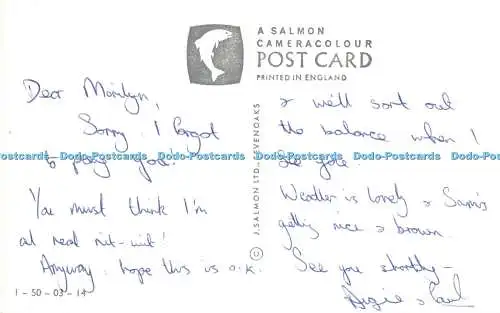 A SALMON
CAMERACOLOUR
POST CARD
PRINTED IN ENGLAND
Dear Marilyn,
Sorry I forgot
to pay you.
You must think I'm
a real nit-wit!
Anyway, hope this is o.k.
J. SALMON LTD., SEVENOAKS
& we'll sort out
the balance when I
see you.
Weather is lovely & Sam's
getting nice & brown.
See you shortly -
Angie & Paul
Dodo-Postcards Dodo-Postcards Dodo-Postcards Dodo-Postcards Dodo-Postcards Dodo-Postcards
1-50-03-14